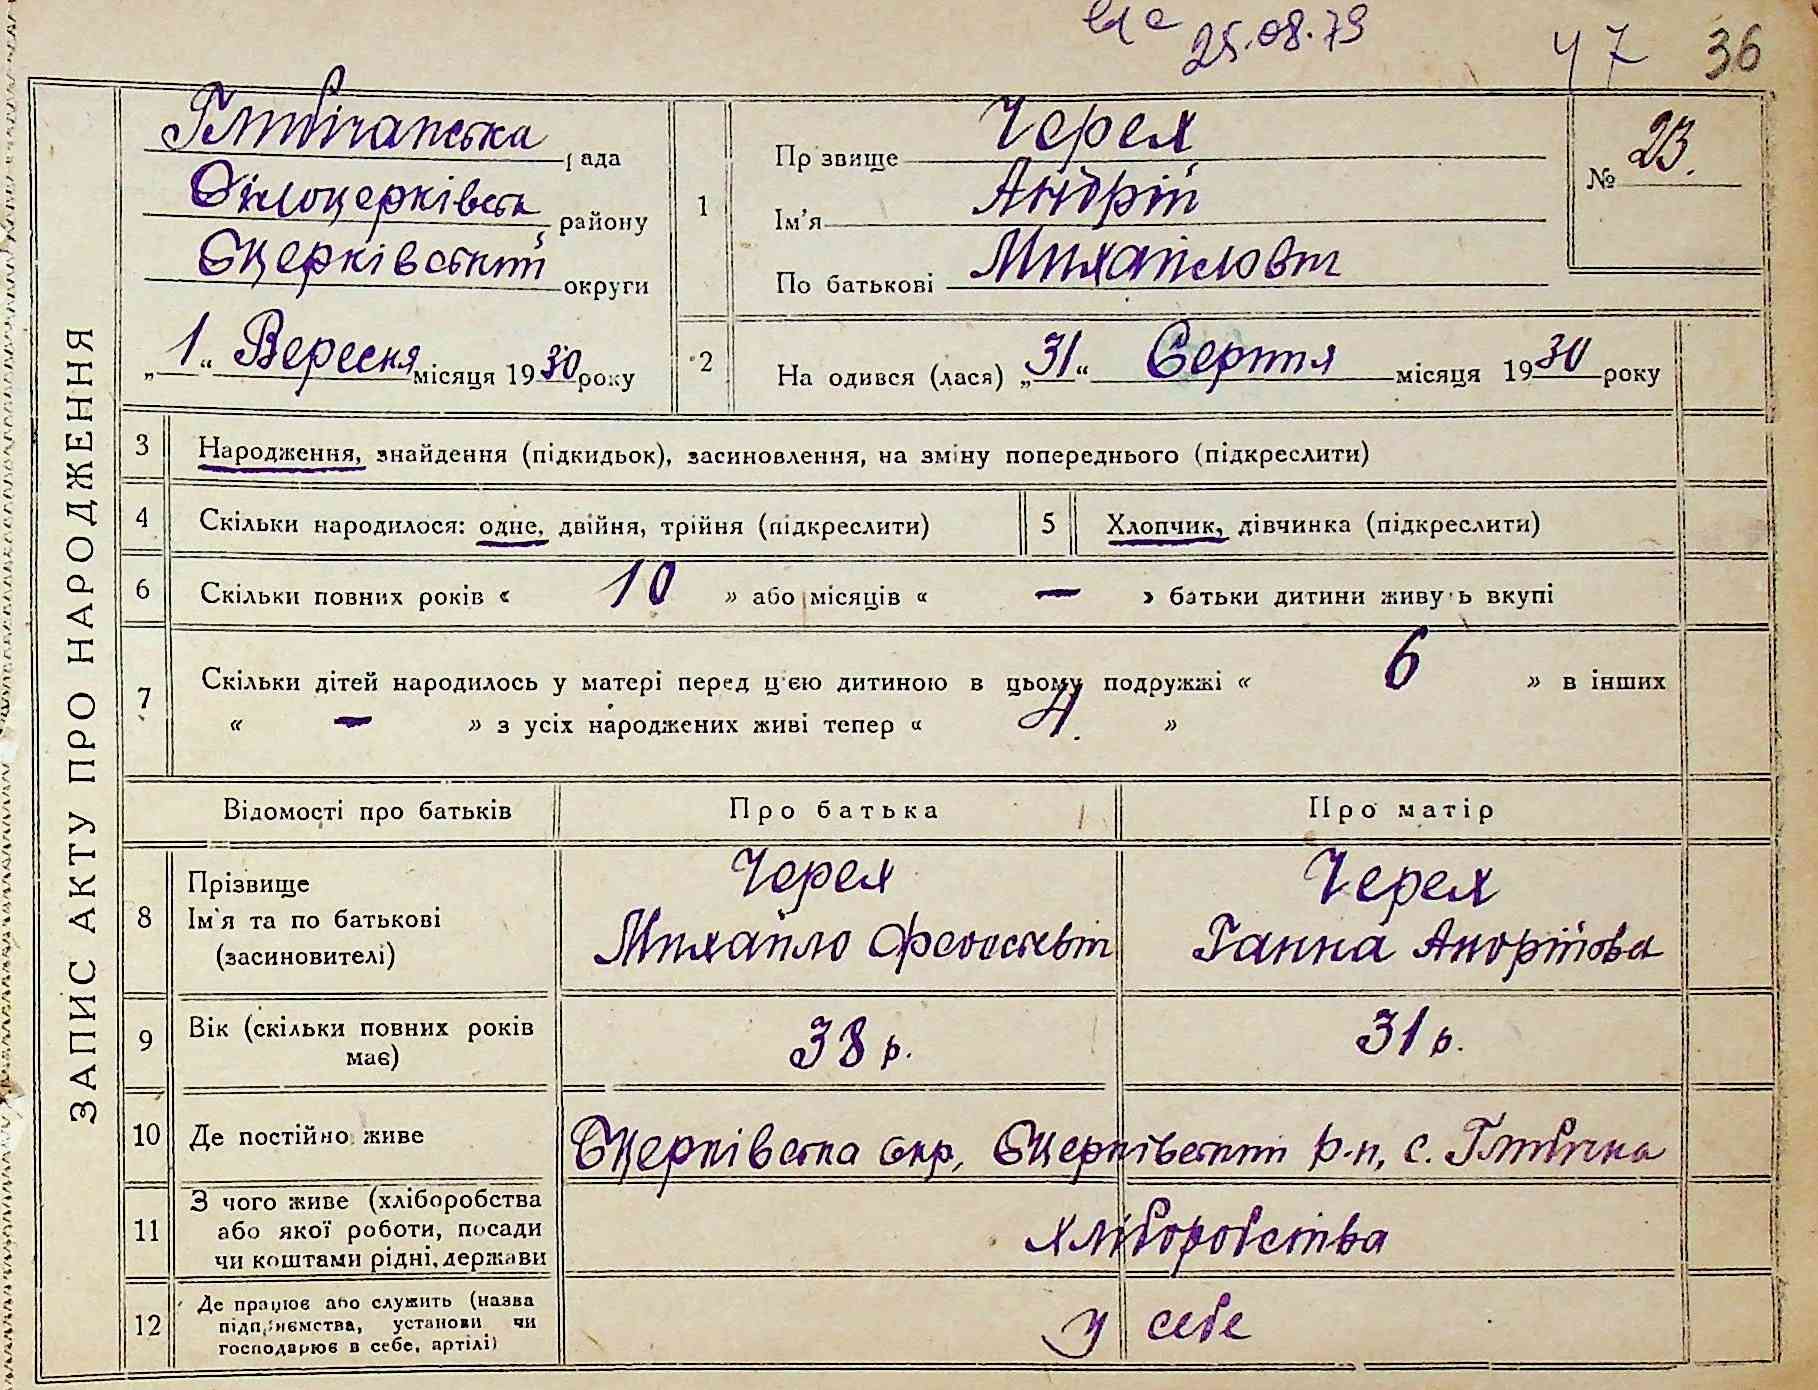 25.08.79
47 36
ЗАПИС АКТУ ПРО НАРОДЖЕННЯ
Глибічанська рада
Білоцерківськ району
Бцерківській округи
„1“ Вересня місяця 1930 року
1
Прізвище Черех
Ім'я Андрій
По батькові Михайлови
№ 23.
2
На одився (лася) „31“ Серпня місяця 1930 року
3 Народження, знайдення (підкидьок), засиновлення, на зміну попереднього (підкреслити)
4 Скільки народилося: одне, двійня, трійня (підкреслити) 5 Хлопчик, дівчинка (підкреслити)
6 Скільки повних років « 10 » або місяців « — » батьки дитини живуть вкупі
7 Скільки дітей народилось у матері перед цією дитиною в цьому подружжі « 6 » в інших
« — » з усіх народжених живі тепер « 4. »
Відомості про батьків Про батька Про матір
8 Прізвище
Ім'я та по батькові
(засновителі)
Черех
Михайло
Черех
Ганна Андріїова
9 Вік (скільки повних років
має)
38 р. 31 р.
10 Де постійно живе Бцерківська окр, Бцерківський р-н, с. Глибічка
11 З чого живе (хліборобства
або якої роботи, посади
чи коштами рідні, держави
хліборобства
12 Де працює або служить (назва
підприємства, установи чи
господарює в себе, артілі)
у себе